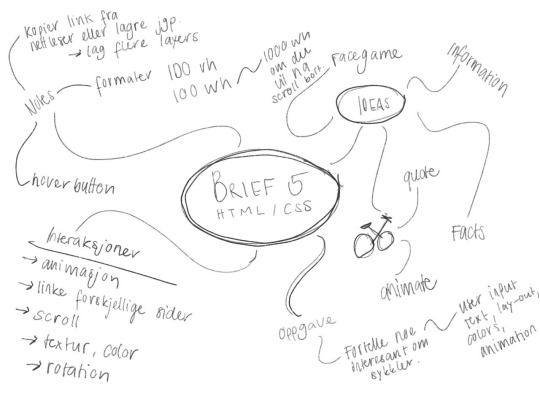 kopier link fra
nettleser eller lagre jgp.
→ lag flere layers
Notes
formater 100 vh
100 wh
1000 wh
om du
vil ha
scroll bort.
hover button
BRIEF 5
HTML / CSS
IDEAS
racegame
Information
quote
Facts
animate
Interaksjoner
→ animasjon
→ linke forskjellige sider
→ scroll
→ textur, color
→ rotation
oppgave
Fortelle noe
interesant om
sykkler.
user input
text, lay-out,
colors,
animation